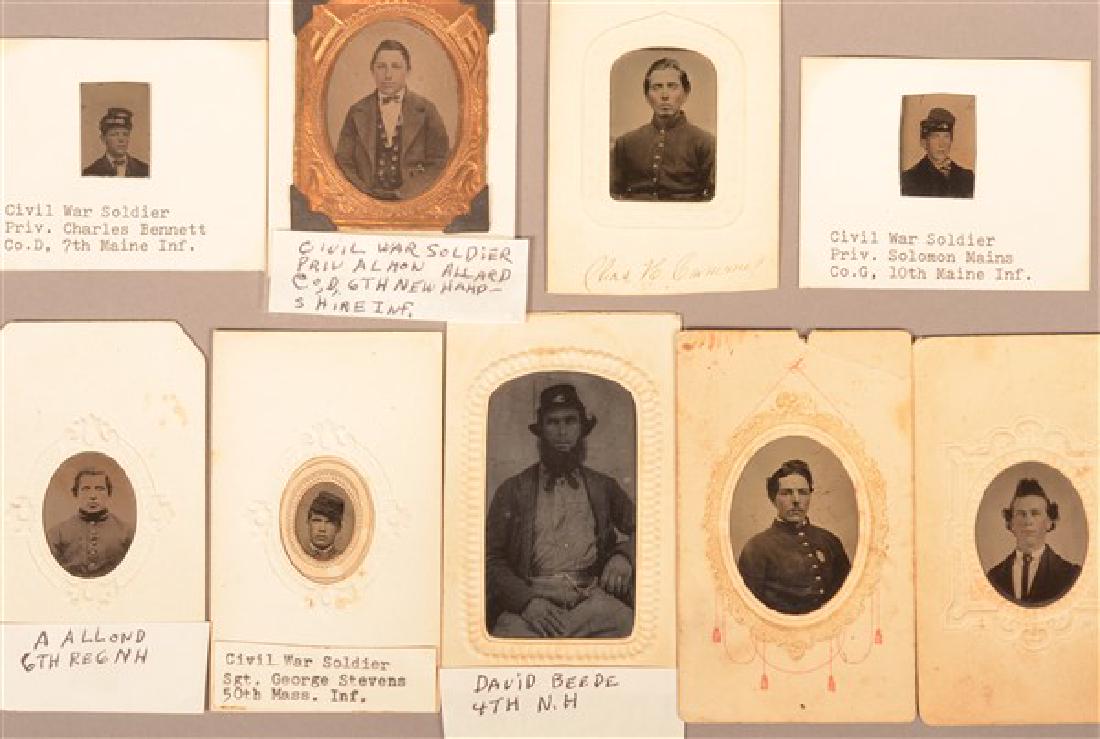 Civil War Soldier
Priv. Charles Bennett
Co.D, 7th Maine Inf.
CIVIL WAR SOLDIER
PRIV ALMON ALLARD
CO,D, 6TH NEW HAMP-
SHIRE INF.
Chas H.
Civil War Soldier
Priv. Solomon Mains
Co.G, 10th Maine Inf.
A ALLOND
6TH REG NH
Civil War Soldier
Sgt. George Stevens
50th Mass. Inf.
DAVID BEEDE
4TH N.H